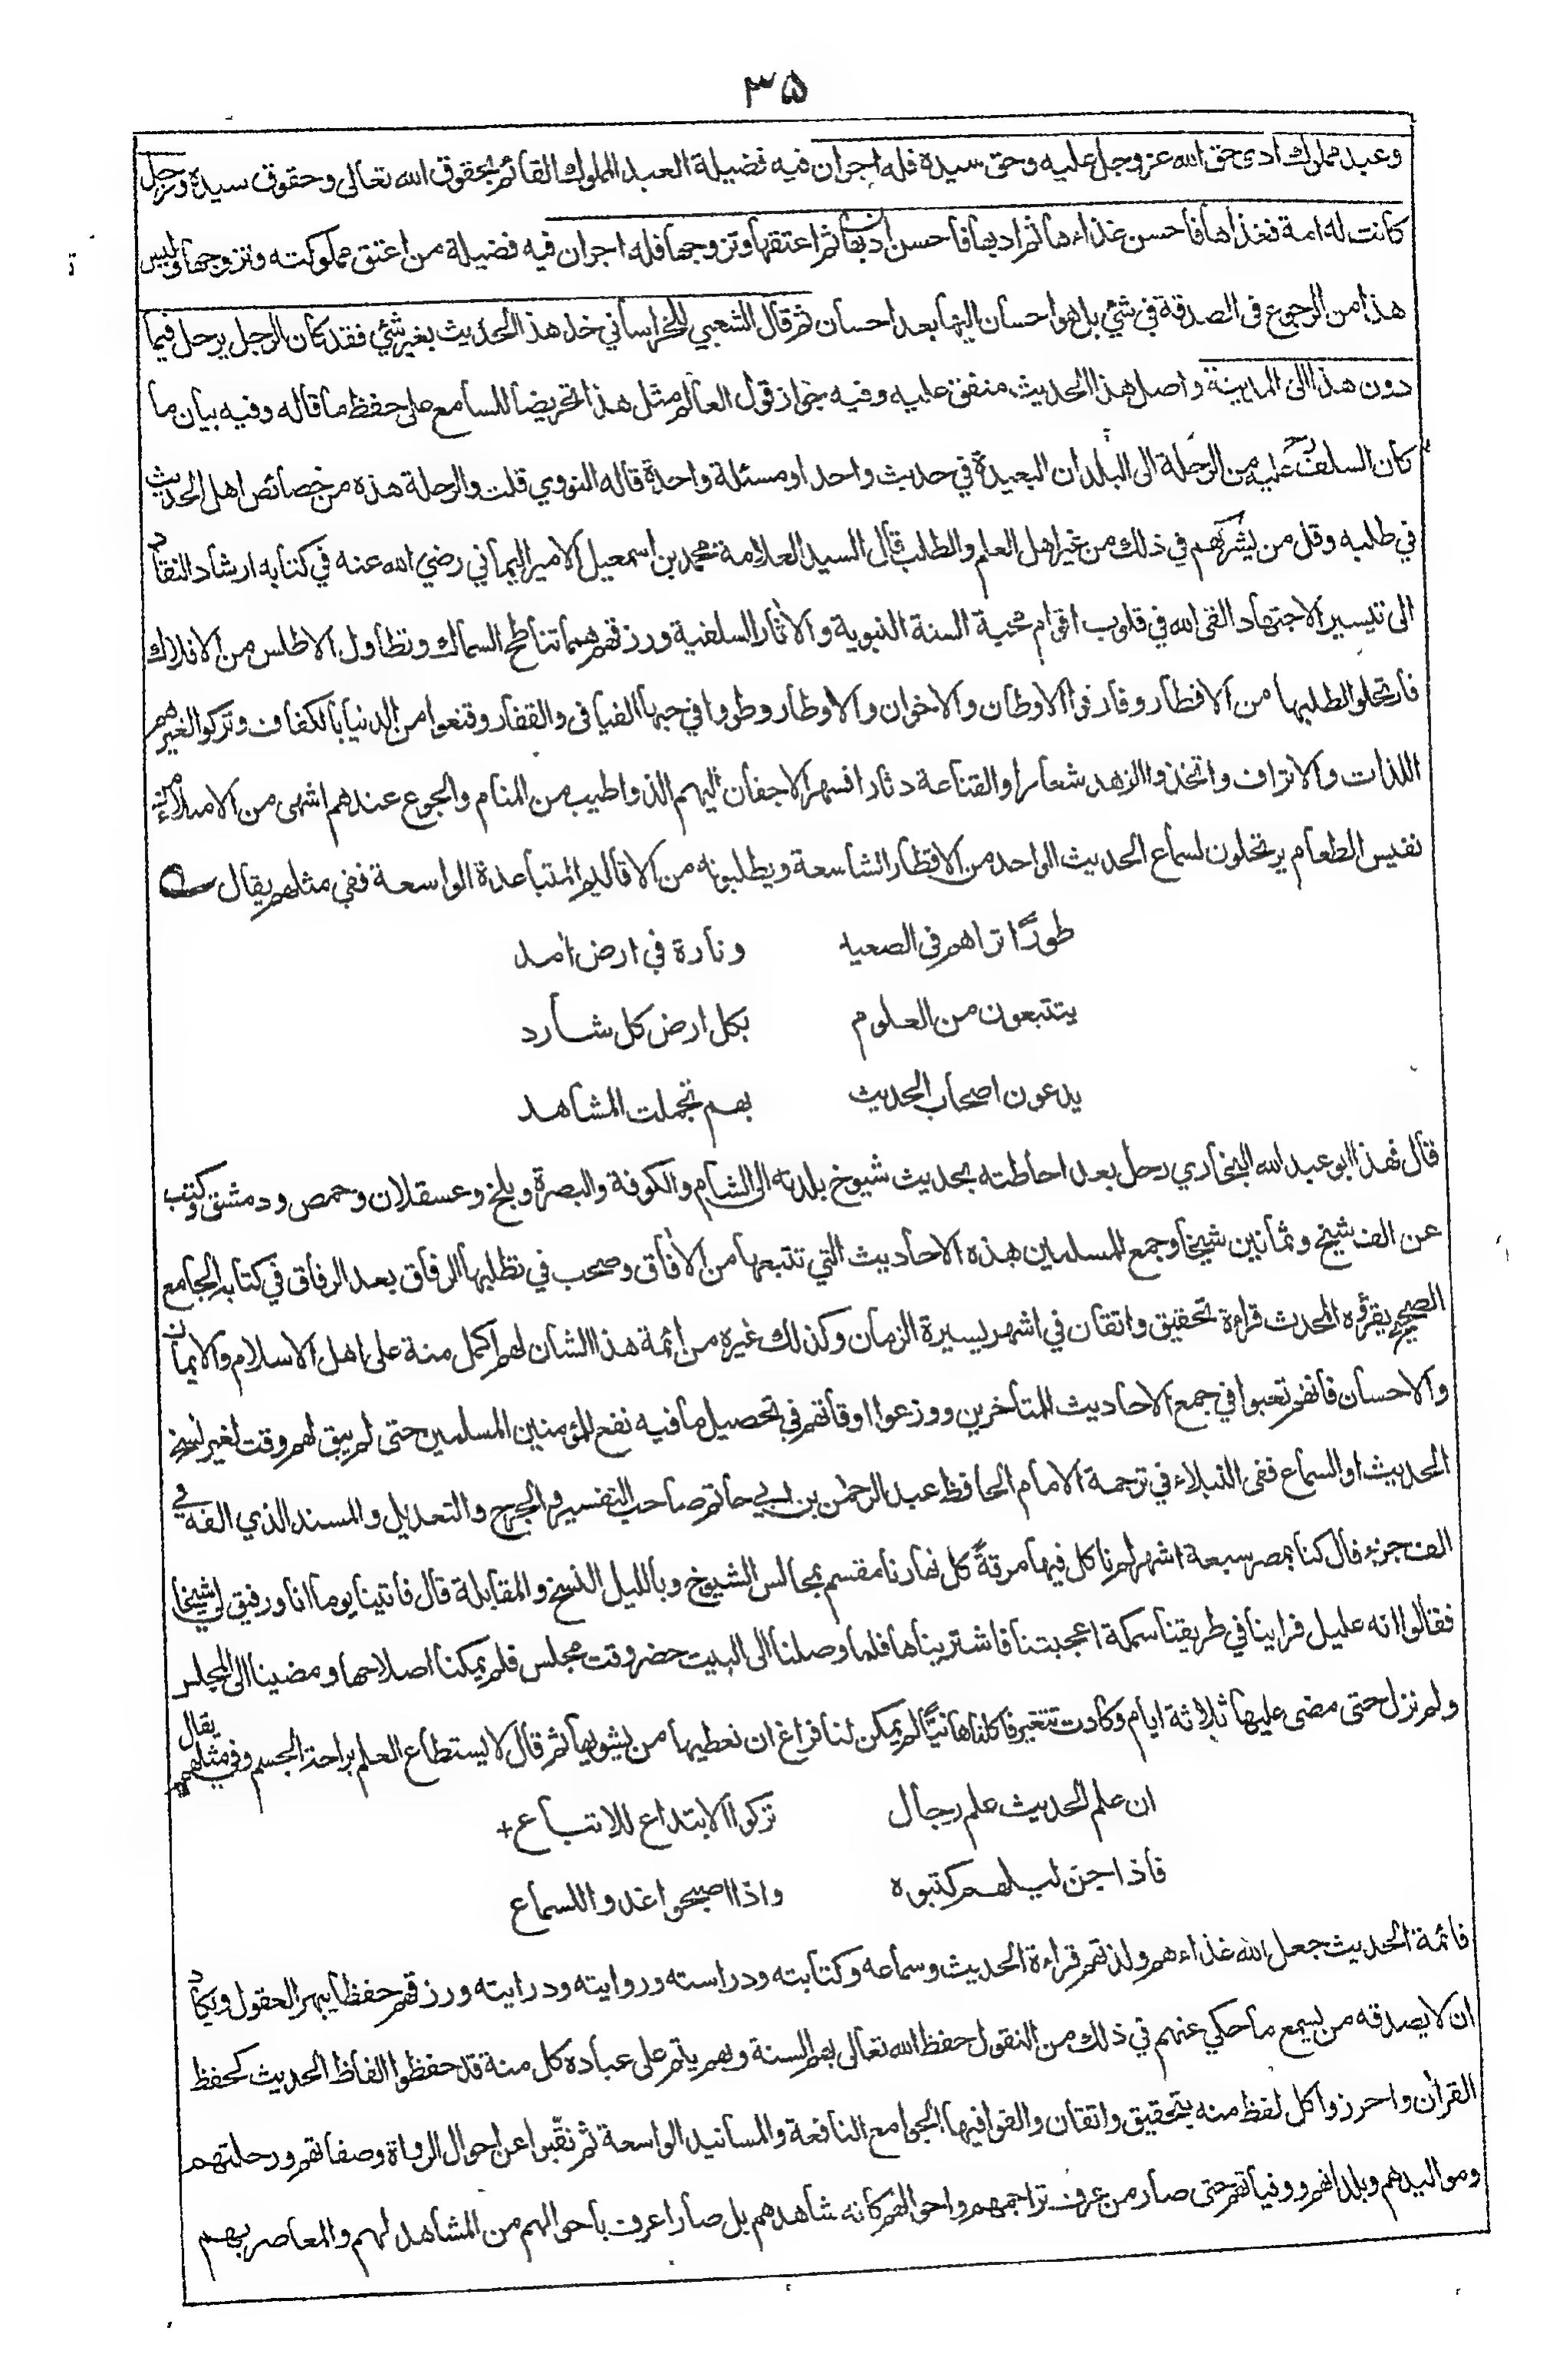 ٣٥
وعبد مملوك ادى حق الله عز وجل عليه وحق سيده فله اجران فيه فضيلة العبد المملوك القائم بحقوق الله تعالى وحقوق سيده ورجل
كانت له امة فغذاها فاحسن غذاءها ثم ادبها فاحسن ادبها ثم اعتقها وتزوجها فله اجران فيه فضيلة من اعتق مملوكته وتزوجها وليس
هذا من الرجوع في الصدقة في شئ بل هو احسان اليها بعد احسان ثم قال الشعبي للخراساني خذ هذا الحديث بغير شئ فقد كان الرجل يرحل فيما
دون هذا الى المدينة واصل هذا الحديث متفق عليه وفيه جواز قول العالم مثل هذا تحريضا للسامع على حفظ ما قاله وفيه بيان ما
كان السلف رح عليه من الرحلة الى البلدان البعيدة في حديث واحد او مسئلة واحدة قاله النووي قلت والرحلة هذه من خصائص اهل الحديث
في طلبه وقل من يشركهم في ذلك من غير اهل العلم والطلب قال السيد العلامة محمد بن اسمعيل الامير اليماني رضي الله عنه في كتابه ارشاد النقاد
الى تيسير الاجتهاد القى الله في قلوب اقوام محبة السنة النبوية والأثار السلفية ورزقهم همما تناطح السماك وتطاول الاطلس من الافلاك
فارتحلوا لطلبها من الاقطار وفارقوا الاوطان والاخوان والاوطار وطووا في حبها الفيافى والقفار وقنعوا من الدنيا بالكفاف وتركوا لغيرهم
اللذات والاتراف واتخذوا الزهد شعارا والقناعة دثارا فسهر الاجفان اليهم الذ واطيب من المنام والجوع عندهم اشهى من الامتلاء من
نفيس الطعام يرتحلون لسماع الحديث الواحد من الاقطار الشاسعة ويطلبونه من الاقاليم المتباعدة الواسعة ففي مثلهم يقال
طورًا تراهم في الصعيد وتارة في ارض امد
يتتبعون من العلوم بكل ارض كل شارد
يدعون اصحاب الحديث بهم تجملت المشاهد
قال فهذا ابو عبد الله البخاري رحل بعد احاطته بحديث شيوخ بلدته الى الشام والكوفة والبصرة وبلخ وعسقلان وحمص ودمشق وكتب
عن الف شيخ وثمانين شيخا وجمع للمسلمين هذه الاحاديث التي تتبعها من الأفاق وصحب في تطلبها الرفاق بعد الرفاق في كتابه الجامع
الصحيح يقرؤه المحدث قراءة تحقيق واتقان في اشهر يسيرة الزمان وكذلك غيره من ائمة هذا الشان لهم اكمل منة على اهل الاسلام والايمان
والاحسان فانهم تعبوا في جمع الاحاديث للمتأخرين ووزعوا اوقاتهم في تحصيل ما فيه نفع للمؤمنين المسلمين حتى لم يبق لهم وقت لغير نسخ
الحديث او السماع ففى النبلاء في ترجمة الامام الحافظ عبد الرحمن بن ابي حاتم صاحب التفسير والجرح والتعديل والمسند الذي الفه في
الف جزء قال كنا بمصر سبعة اشهر لم ناكل فيها مرقة كل نهارنا مقسم بمجالس الشيوخ وبالليل النسخ والمقابلة قال فاتينا يوما انا ورفيق لي شيخا
فقالوا انه عليل فراينا في طريقنا سمكة اعجبتنا فاشتريناها فلما وصلنا الى البيت حضر وقت مجلس فلم يمكنا اصلاحها ومضينا الى المجلس
ولم نزل حتى مضى عليها ثلاثة ايام وكادت تتغير فاكلناها نيًا لم يمكن لنا فراغ ان نعطيها من يشويها ثم قال لا يستطاع العلم براحة الجسم وفي مثلهم يقال
ان علم الحديث علم رجال تركوا الابتداع للاتباع +
فاذا جن ليلهم كتبوه واذا اصبحوا غدوا للسماع
فائمة الحديث جعل الله غذاءهم ولذتهم قراءة الحديث وسماعه وكتابته ودراسته وروايته ودرايته ورزقهم حفظا يبهر العقول ويكاد
ان لا يصدقه من يسمع ما حكي عنهم في ذلك من النقول حفظ الله تعالى بهم السنة وبهم يتم على عباده كل منة قد حفظوا الفاظ الحديث كحفظ
القرأن واحرزوا كل لفظ منه بتحقيق واتقان والفوا فيها الجوامع النافعة والمسانيد الواسعة ثم نقّبوا عن احوال الرواة وصفاتهم ورحلتهم
ومواليدهم وبلدانهم ووفياتهم حتى صار من عرف تراجمهم واحوالهم كانه شاهدهم بل صار اعرف باحوالهم من المشاهد لهم والمعاصر بهم